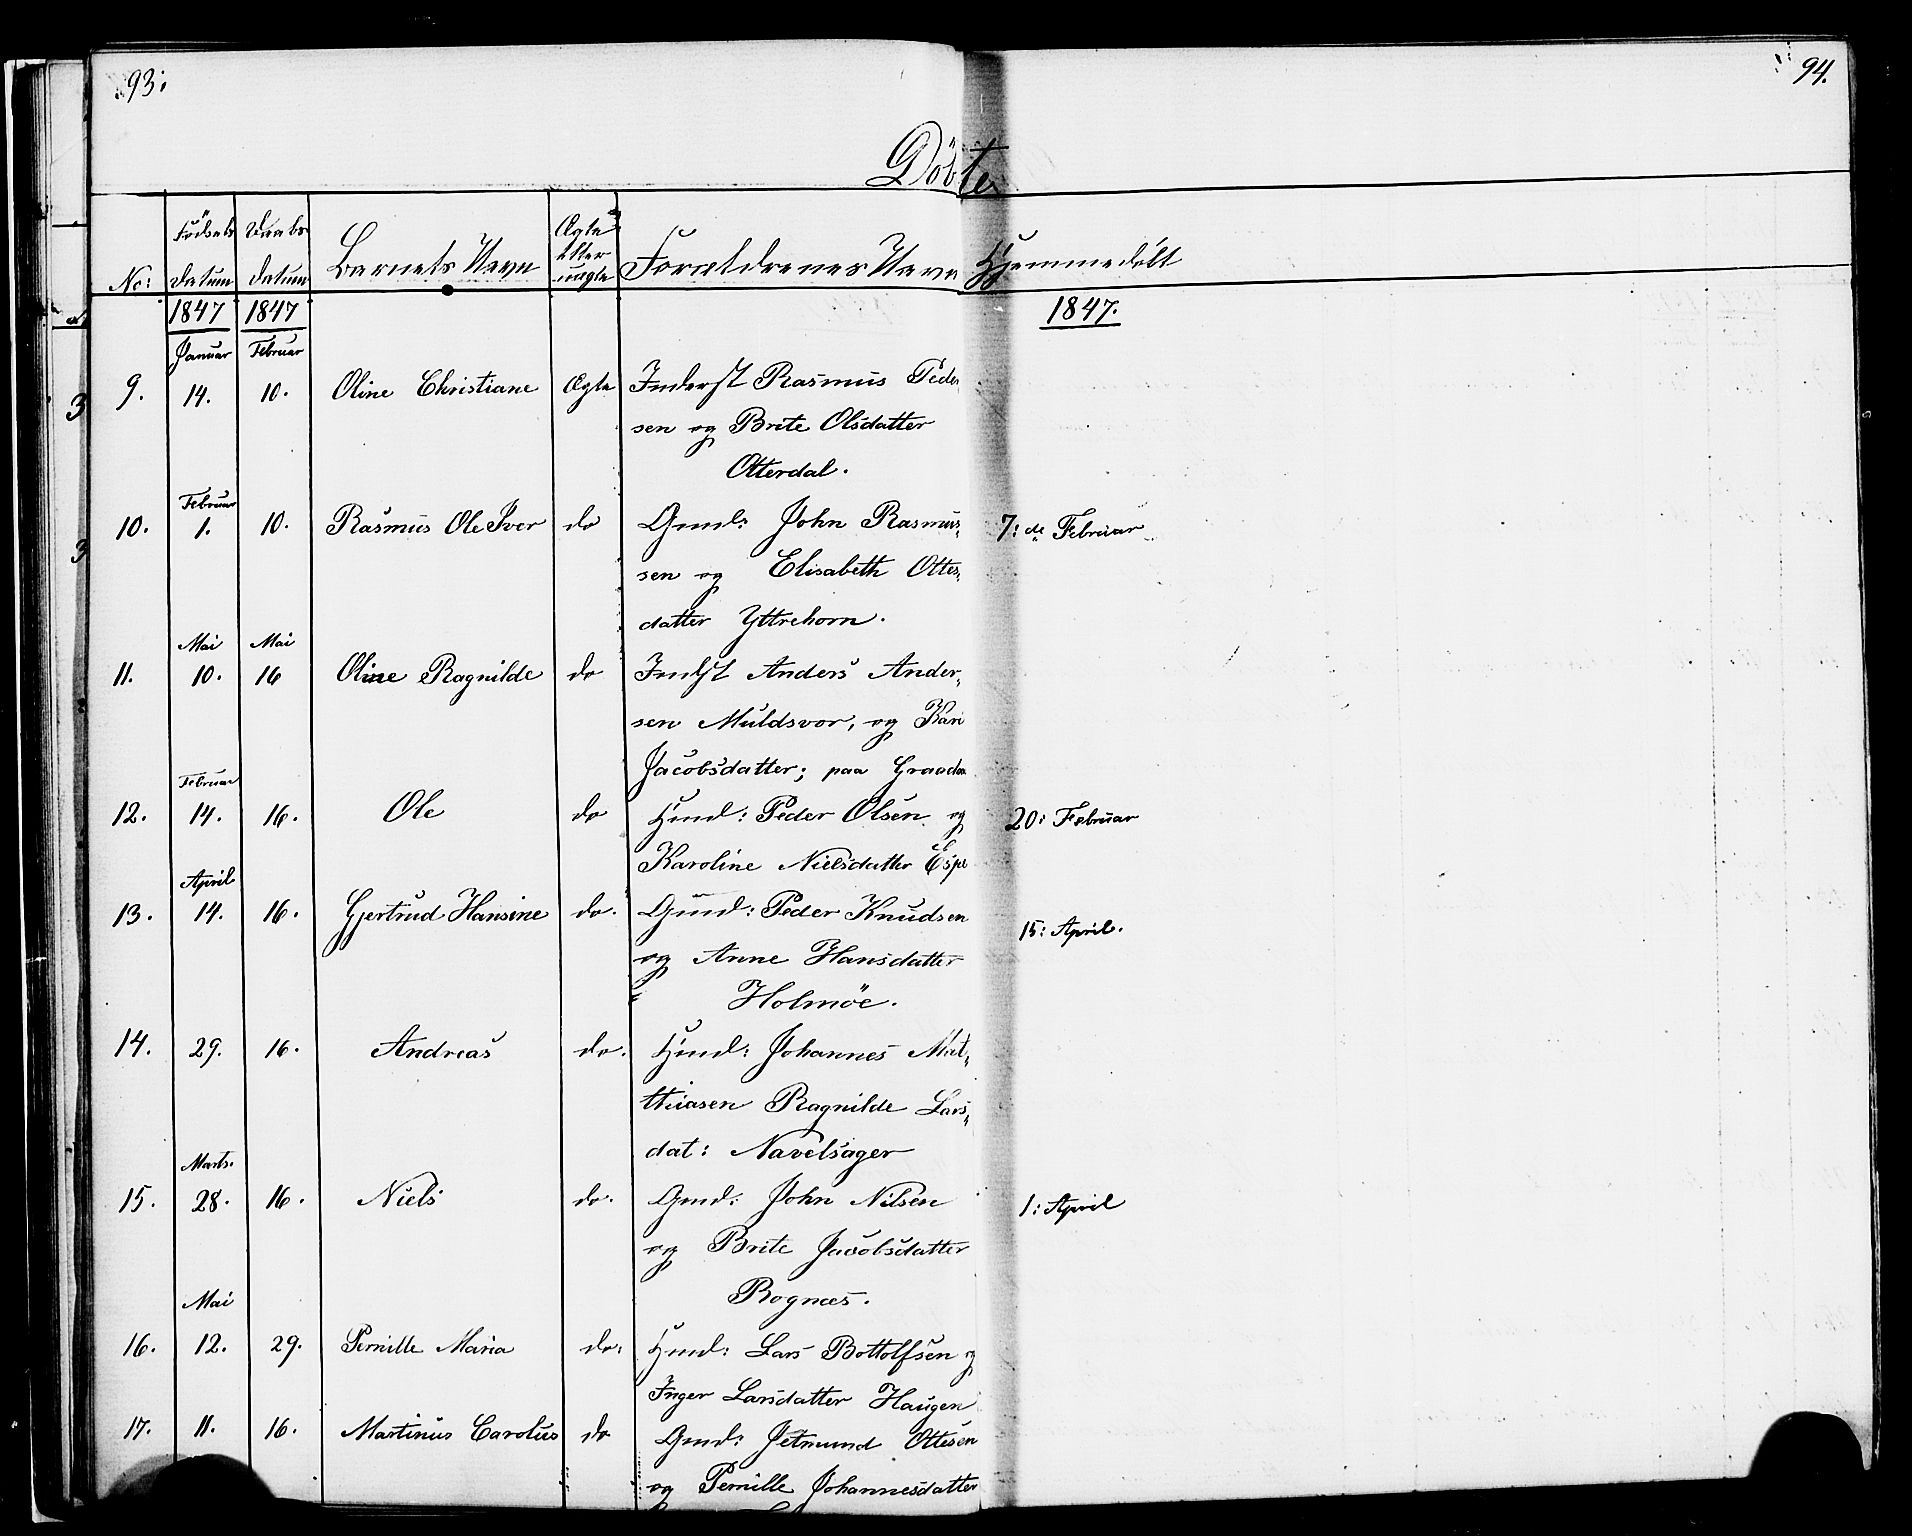 93:
94.
Döbte
No: Födsels Datum Daabs Datum Barnets Navn Ægte eller uægte Forældrenes Navn Hjemmedöbt
1847 1847 1847.
Januar Februar
9. 14. 10. Oline Christiane Ægte Inderst Rasmus Peder
sen og Brite Olsdatter
Otterdal.
Februar
10. 1. 10. Rasmus Ole Iver do Gmd: John Rasmus-
7: de Februar
sen og Elisabeth Ottes-
datter Yttrehorn.
Mai Mai
11. 10. 16 Oline Ragnilde do Indst Anders Ander-
sen Muldsvor, og Kari
Jacobsdatter; paa
Februar
12. 14. 16. Ole do Hmd: Peder Olsen og
20: Februar
Karoline Nielsdatter Espe
April
13. 14. 16. Gjertrud Hansine do. Gmd: Peder Knudsen
15: April.
og Anne Hansdatter
Holmöe.
14. 29. 16. Andreas do. Hmd: Johannes Mat-
thiasen Ragnilde Lars-
dat: Navelsager
Marts.
15. 28. 16. Niels do. Gmd: John Nilsen
1: April
og Brite Jacobsdatter
Rognæs.
Mai
16. 12. 29. Pernille Maria do: Hmd: Lars Bottolfsen og
Inger Larsdatter Haugen
17. 11. 16. Martinus Carolus do Gmd: Jetmund Ottesen
og Pernille Johannesdatter